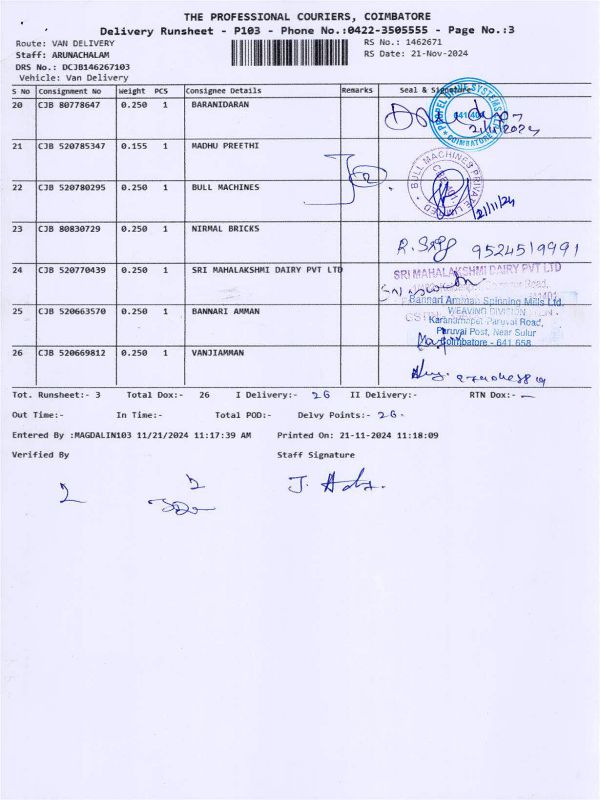 THE PROFESSIONAL COURIERS, COIMBATORE
Delivery Runsheet - P103 - Phone No.:0422-3505555 - Page No.:3
Route: VAN DELIVERY RS No.: 1462671
Staff: ARUNACHALAM RS Date: 21-Nov-2024
DRS No.: DCJB146267103
Vehicle: Van Delivery
S No Consignment No Weight PCS Consignee Details Remarks Seal & Signature
20 CJB 80778647 0.250 1 BARANIDARAN
PROPEL SYSTEMS
641 40
COIMBATORE
21/11/2024
21 CJB 520785347 0.155 1 MADHU PREETHI
22 CJB 520780295 0.250 1 BULL MACHINES
BULL MACHINES PRIVATE LIMITED
21/11/24
23 CJB 80830729 0.250 1 NIRMAL BRICKS
9524519991
24 CJB 520770439 0.250 1 SRI MAHALAKSHMI DAIRY PVT LTD
SRI MAHALAKSHMI DAIRY PVT LTD
25 CJB 520663570 0.250 1 BANNARI AMMAN
Bannari Amman Spinning Mills Ltd.
WEAVING DIVISION
Karanampet Paruvai Road,
Paruvai Post, Near Sulur
Coimbatore - 641 658
26 CJB 520669812 0.250 1 VANJIAMMAN
Tot. Runsheet:- 3 Total Dox:- 26 I Delivery:- 26 II Delivery:- RTN Dox:- —
Out Time:- In Time:- Total POD:- Delvy Points:- 26-
Entered By :MAGDALIN103 11/21/2024 11:17:39 AM Printed On: 21-11-2024 11:18:09
Verified By Staff Signature